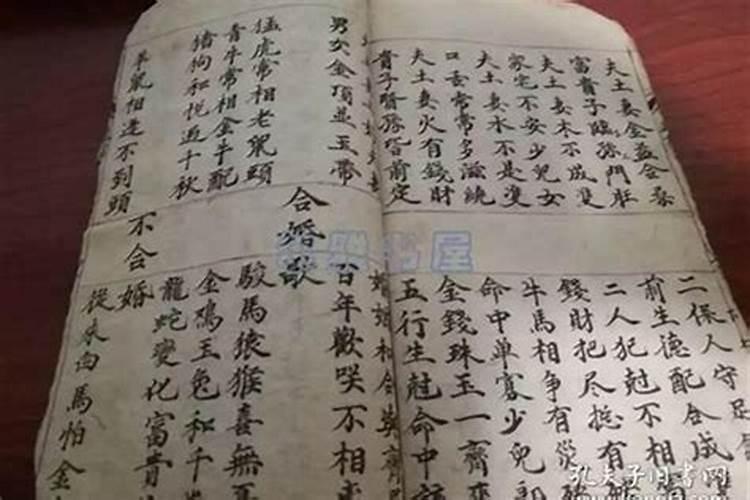 夫土妻金益合
富貴子臨孫門
夫土妻木不成雙
家宅不安少兒女
夫土妻水不是雙
口舌常常多滋繞
夫土妻火有錢財
貴子賢孫皆前定
二保人守足
前生德配合成
二人犯尅不相
錢財把尽挺有
牛馬相争有災
命中单寡少兒郎
金錢珠玉一齊來
五行生尅命中該
婚姻和合莫齊
男女金頂並玉帶
合婚歌
百年歡咲不相
猛虎常相老鼠頭
駿馬猿猴喜無
青牛常相金牛配
金鳮玉兔和千
猪狗和悦过千秋
龍蛇變化富貴
不合婚
羊鼠相逢不到頭
從来白馬怕金
孔夫子旧書网